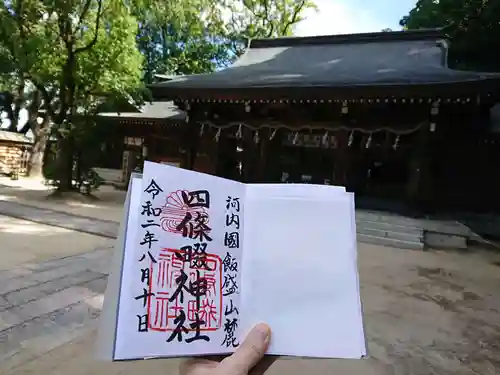 河内国飯盛山麓
四條畷神社
令和二年八月十日